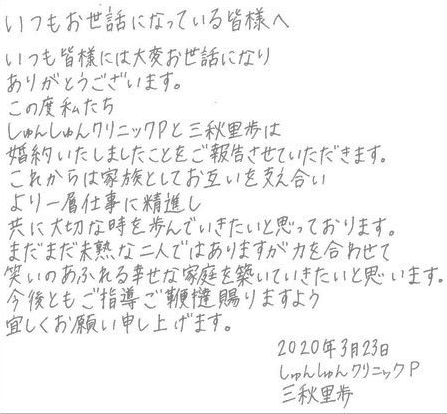 いつもお世話になっている皆様へ
いつも皆様には大変お世話になり
ありがとうございます。
この度私たち
しゅんしゅんクリニックPと三秋里歩は
婚約いたしましたことをご報告させていただきます。
これからは家族としてお互いを支え合い
より一層仕事に精進し
共に大切な時を歩んでいきたいと思っております。
まだまだ未熟な二人ではありますが力を合わせて
笑いのあふれる幸せな家庭を築いていきたいと思います。
今後ともご指導ご鞭撻賜りますよう
宜しくお願い申し上げます。
2020年3月23日
しゅんしゅんクリニックP
三秋里歩